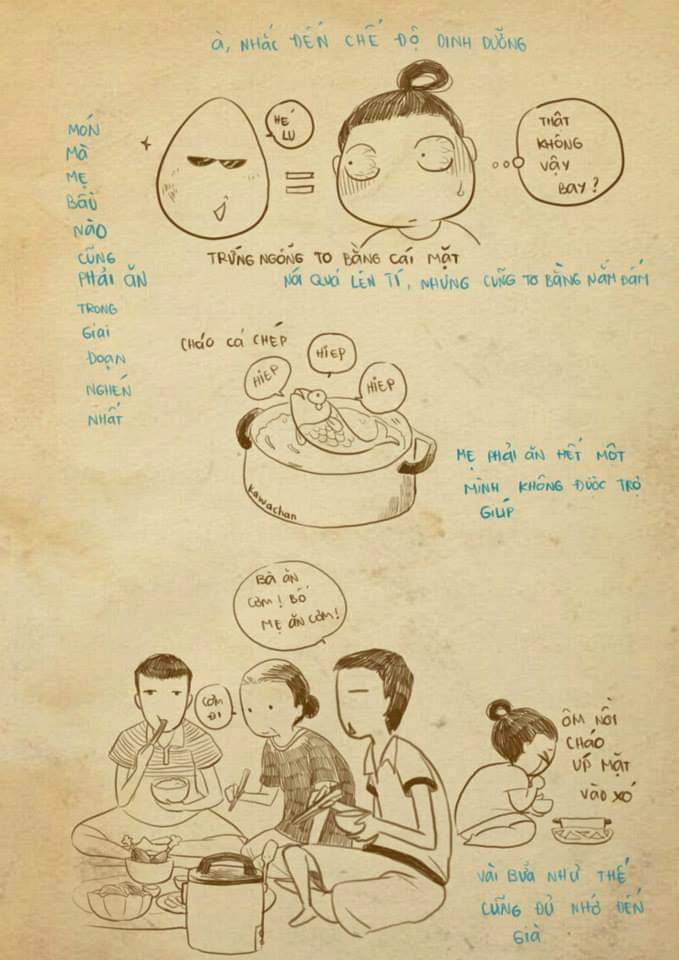 à, NHẮC ĐẾN CHẾ ĐỘ DINH DƯỠNG
MÓN
MÀ
MẸ
BẦU
NÀO
CŨNG
PHẢI ĂN
TRONG
GIAI
ĐOẠN
NGHÉN
NHẤT
HÉ
LU
THẬT
KHÔNG
VẬY
BAY?
TRỨNG NGỖNG TO BẰNG CÁI MẶT
NÓI QUÁ LÊN TÍ, NHƯNG CŨNG TO BẰNG NẮM ĐẤM
CHÁO CÁ CHÉP
HIEP
HIEP
HIEP
kawachan
MẸ PHẢI ĂN HẾT MỘT
MÌNH KHÔNG ĐƯỢC TRỢ
GIÚP
BÀ ĂN
CƠM! BỐ
MẸ ĂN CƠM!
CƠM
ĐI
ÔM NỒI
CHÁO
ÚP MẶT
VÀO XÓ
VÀI BỮA NHƯ THẾ
CŨNG ĐỦ NHỚ ĐẾN
GIÀ